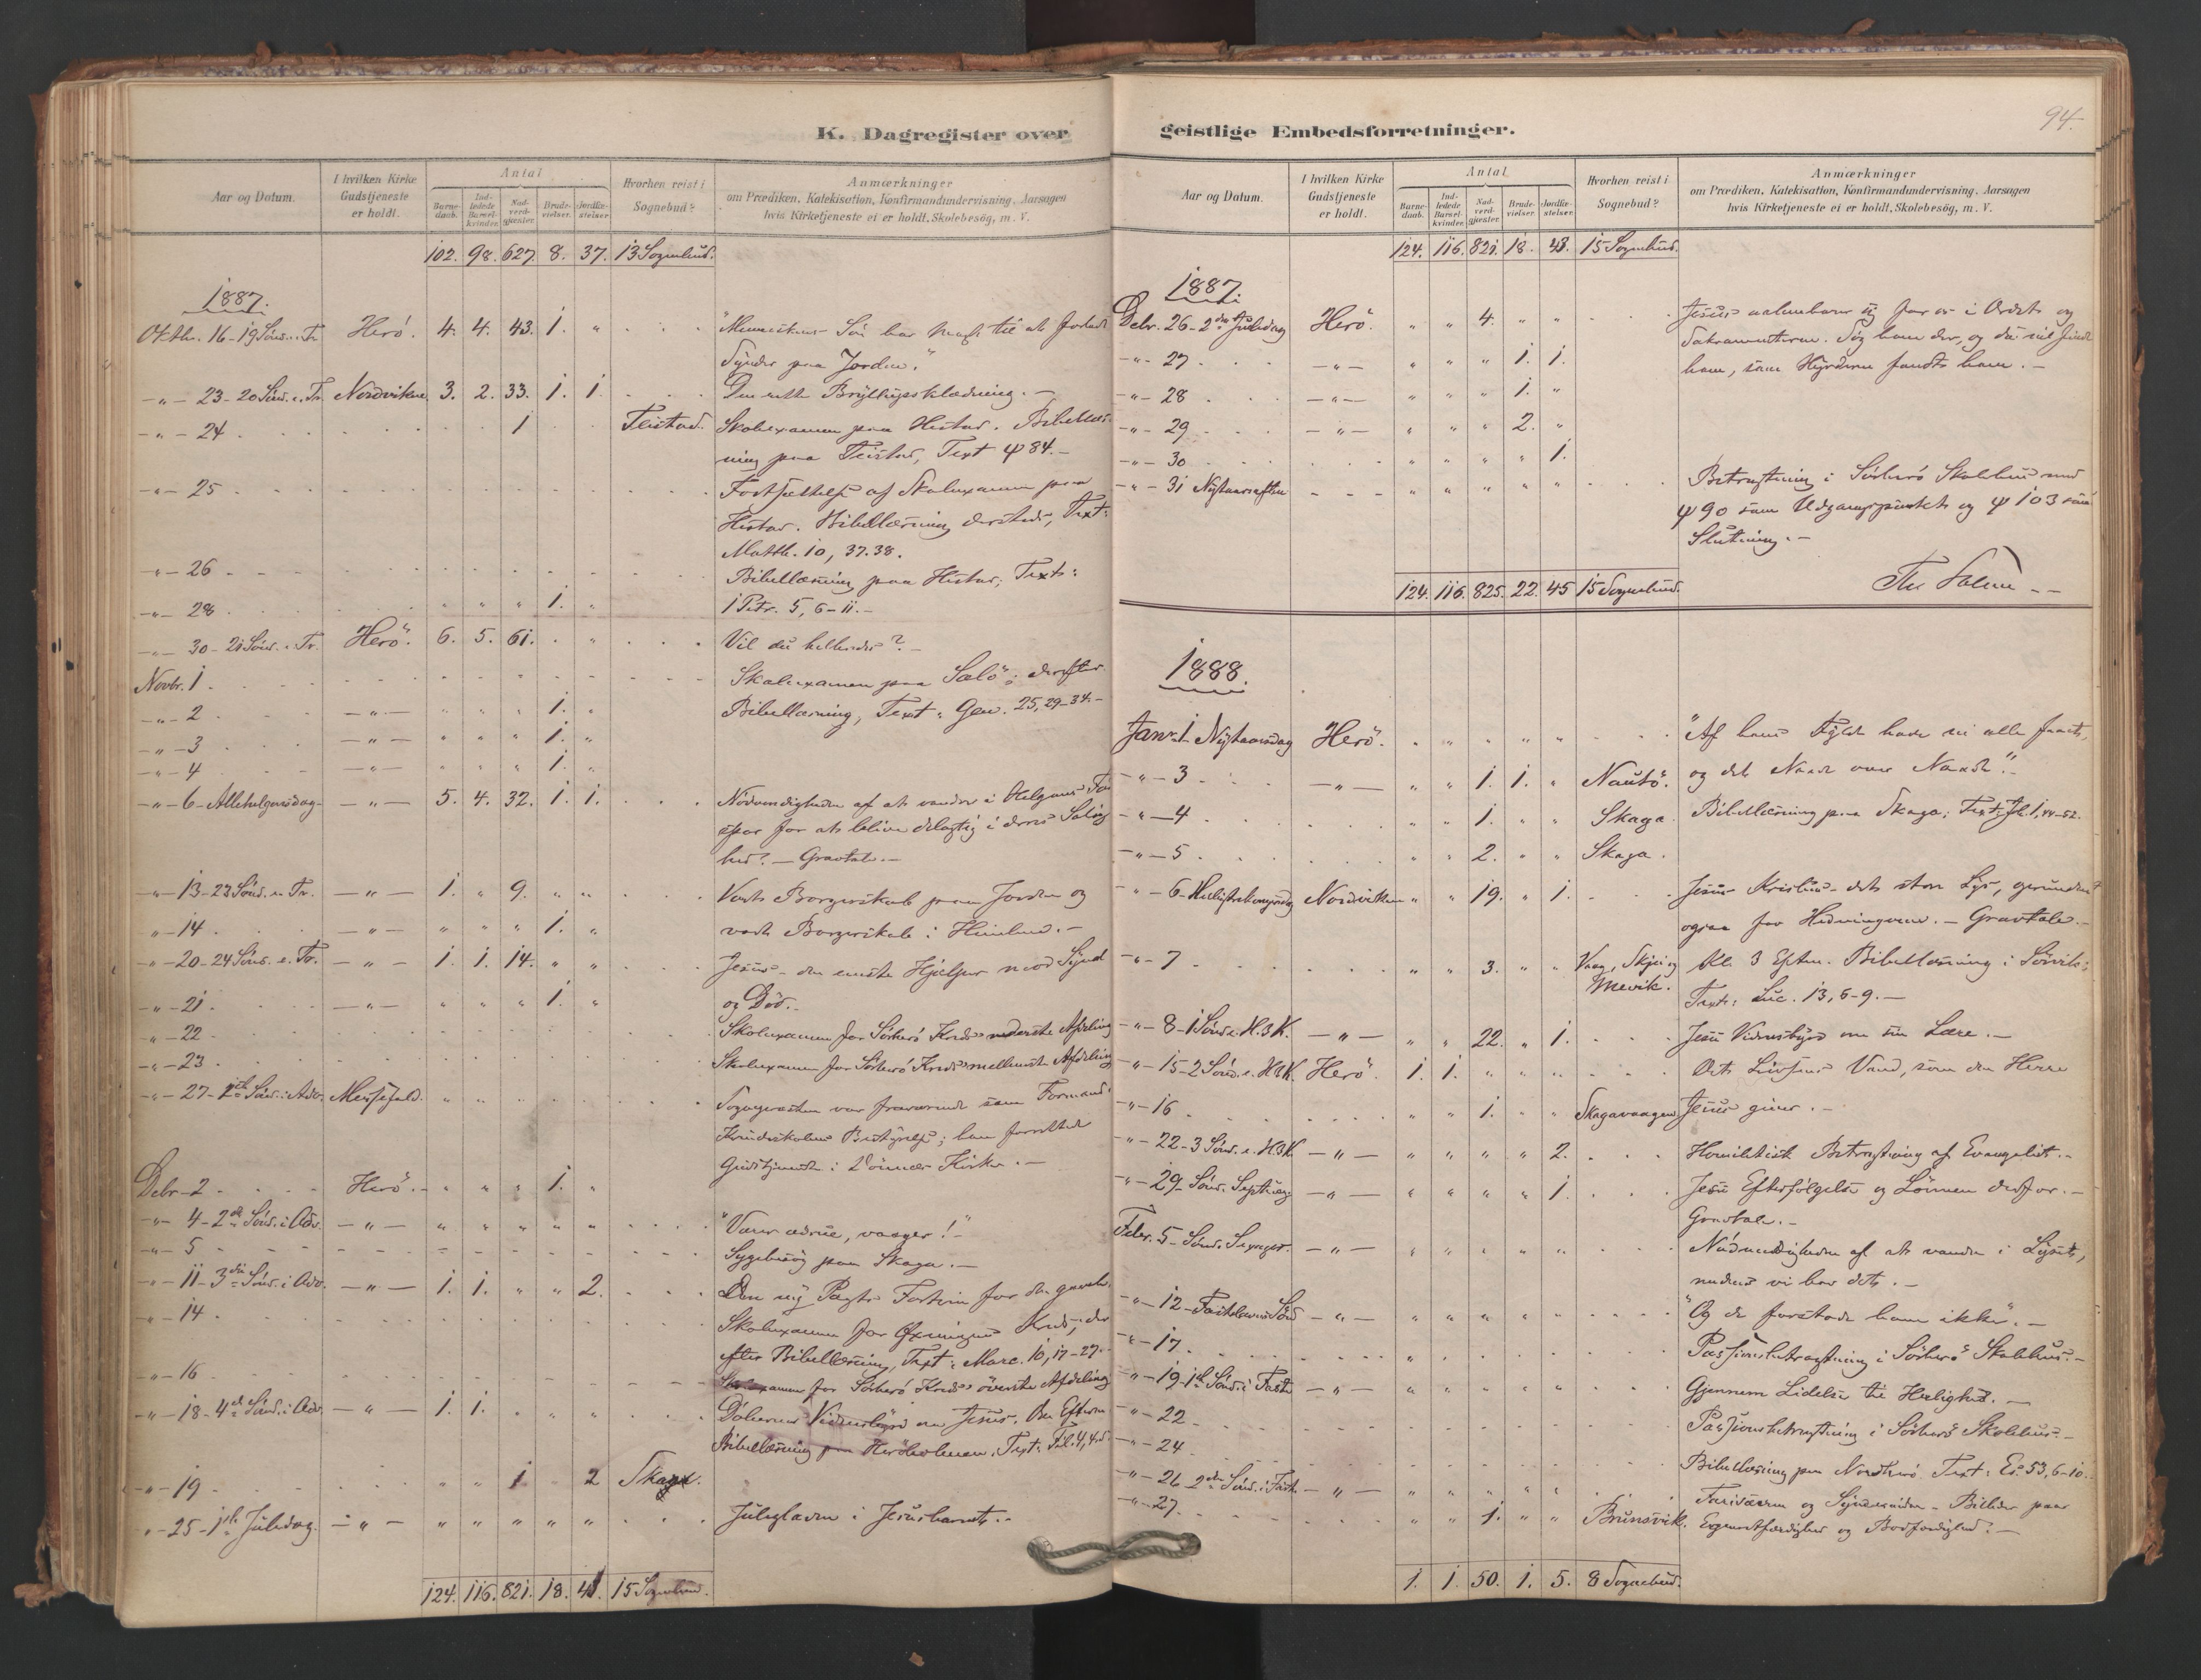 94.
K. Dagregister over
Aar og Datum. I hvilken Kirke Gudstjeneste er holdt. Antal Barnedaab. Indledede Barselkvinder. Nadverdgjester. Brudevielser. Jordfæstelser. Hvorhen reist i Sognebud? Anmærkninger om Prædiken, Katekisation, Konfirmandundervisning, Aarsagen hvis Kirketjeneste ei er holdt, Skolebesøg, m. V.
102. 98. 627. 8. 37. 13 Sognebud.
1887.
Oktbr. 16 - 19 Sönd. e. Tr. Herö. 4. 4. 43. 1. " "Menneskens Sön har Magt til at forlade
Synder paa Jorden."
-"- 23 - 20 Sönd. e. Tr. Nordviken 3. 2. 33. 1. 1. Den rette Bryllupsklædning. -
-"- 24 1 Teistad. Skolexamen paa Hestad. Bibellæs-
ning paa Teistad, Text ψ 84. -
-"- 25 Fortsættelse af Skolexamen paa
Hestad. Bibellæsning dersteds, Text:
Matth. 10, 37.38.
-"- 26 Bibellæsning paa Hestad; Text:
1 Petr. 5, 6-11. -
-"- 28 " " " 1. "
-"- 30 - 21 Sönd. e. Tr. Herö. 6. 5. 61. " " Vil du helbredes? -
Novbr. 1 Skolexamen paa Salö; derefter
Bibellæsning, Text: Gen. 25, 29-34. -
-"- 2 -"- " " " 1. "
-"- 3 -"- " " " 1. "
-"- 4 -"- " " " 1. "
-"- 6 - Allehelgensdag -"- 5. 4. 32. 1. 1. Nödvendigheden af at vandre i Helgenes Fod-
spor for at blive delagtig i deres Salig-
hed? - Gravtale. -
-"- 13 - 23 Sönd. e. Tr. -"- 1. " 9. " " Vort Borgerskab paa Jorden og
vort Borgerskab i Himlen. -
-"- 14 -"- " " " 1. "
-"- 20 - 24 Sönd. e. Tr. -"- 1. 1. 14. " " Jesus - den eneste Hjælper mod Synd
og Död. -
-"- 21 -"- " " " 1. "
-"- 22 Skolexamen for Sörherö Kreds' nederste Afdeling
-"- 23 Skolexamen for Sörherö Kreds' mellemste Afdeling
-"- 27 - 1ste Sönd. i Adv. Messefald. Sognepresten var fraværende som Formand i
Bestyrelse; han forrettede
Gudstjeneste i Dönnes Kirke. -
Debr. 2 Herö. " " " 1. "
-"- 4 - 2den Sönd. i Adv. -"- " " " " " "Vær ædrue, vaager!" -
-"- 5 Sygebesög paa Skaga. -
-"- 11 - 3die Sönd. i Adv. -"- 1. 1. " " 2. Den ny Pagts Fortrin for den gamle.
-"- 14 Skolexamen for Öxningens Kreds, der-
efter Bibellæsning, Text: Marc. 10, 17-27. -
-"- 16 Skolexamen for Sörherö Kreds' överste Afdeling
-"- 18 - 4de Sönd. i Adv. -"- 1. 1. " " " Döberens Vidnesbyrd om Jesus. Om Efterm.
Bibellæsning paa Heröholmen. Text: Fil. 4, 4.5.
-"- 19 " " 1 2 Skaga.
-"- 25 - 1ste Juledag. -"- " " " " " Juleglæden i Jesusbarnet. -
124. 116. 821. 18. 43. 15 Sognebud.
geistlige Embedsforretninger.
Aar og Datum. I hvilken Kirke Gudstjeneste er holdt. Antal Barnedaab. Indledede Barselkvinder. Nadverdgjester. Brudevielser. Jordfæstelser. Hvorhen reist i Sognebud? Anmærkninger om Prædiken, Katekisation, Konfirmandundervisning, Aarsagen hvis Kirketjeneste ei er holdt, Skolebesøg, m. V.
124. 116. 821. 18. 43. 15 Sognebud.
1887.
Debr. 26 - 2den Juledag Herö. " " 4. " " Jesus aabenbarer sig for os i Ordet og
Sakramenterne. Søg ham der, og du vil finde
ham, som Hyrderne fandt ham. -
-"- 27 -"- " " " 1. 1.
-"- 28 -"- " " " 1. "
-"- 29 -"- " " " 2. "
-"- 30 " " " " 1.
-"- 31 Nytaarsaften " " " " " Betragtning i Sörherö Skolehus med
ψ 90 som Udgangspunkt og ψ 103 som
Slutning. -
124. 116. 825. 22. 45 15 Sognebud.
1888.
Janr. 1 Nytaarsdag Herö. " " " " " "Af hans Fylde have vi alle faaet,
og det Naade over Naade".
-"- 3 -"- " " 1. 1. " Nautö.
-"- 4 " " 1. " " Skaga. Bibellæsning paa Skaga; Text: Jh. 1, 44-52.
-"- 5 " " 2. " " Skaga.
-"- 6 - Helligtrekongersdag Nordviken " " 19. " 1. Jesus Kristus - det store Lys, oprundet
ogsaa for Hedningerne. - Gravtale. -
-"- 7 " " 3. " " Vaag, Skjei og Mevik. Kl. 3 Efterm. Bibellæsning i Sörvik;
Text: Luc. 13, 6-9. -
-"- 8 - 1 Sönd. e. H.3K. -"- " " 22. " 1. Jesu Vidnesbyrd om sin Lære. -
-"- 15 - 2 Sönd. e. H3K. Herö. 1. 1. " " " Det Livsens Vand, som den Herre
Jesus giver. -
-"- 16 " " 1. " " Skagavaagen
-"- 22 - 3 Sönd. e. H3K. -"- " " " " 2. Homiletisk Betragtning af Evangeliet. -
-"- 29 - Sönd. Septuag. -"- " " " " 1. Jesu Efterfölgelse og Lönnen derfor. -
Gravtale. -
Febr. 5 - Sönd. Sexages. -"- " " " " " Nödvendigheden af at vandre i Lyset,
medens vi har det. -
-"- 12 - Fastelavns Sönd -"- " " " " " "Og de forstode ham ikke". -
-"- 17 Passionsbetragtning i Sörherö Skolehus. -
-"- 19 - 1ste Sönd. i Faste -"- " " " " " Gjennem Lidelse til Herlighed. -
-"- 22 Passionsbetragtning i Sörherö Skolehus. -
-"- 24 Bibellæsning paa Nordherö. Text: Es. 53, 6-10. -
-"- 26 2den Sönd. i Fast. -"- " " " " " Farisæeren og Synderinden - Billeder paa
Egenretfærdighed og Bodfærdighed. -
-"- 27 " " 1. " " Brunsvik.
1. 1. 50. 1. 5. 8 Sognebud.